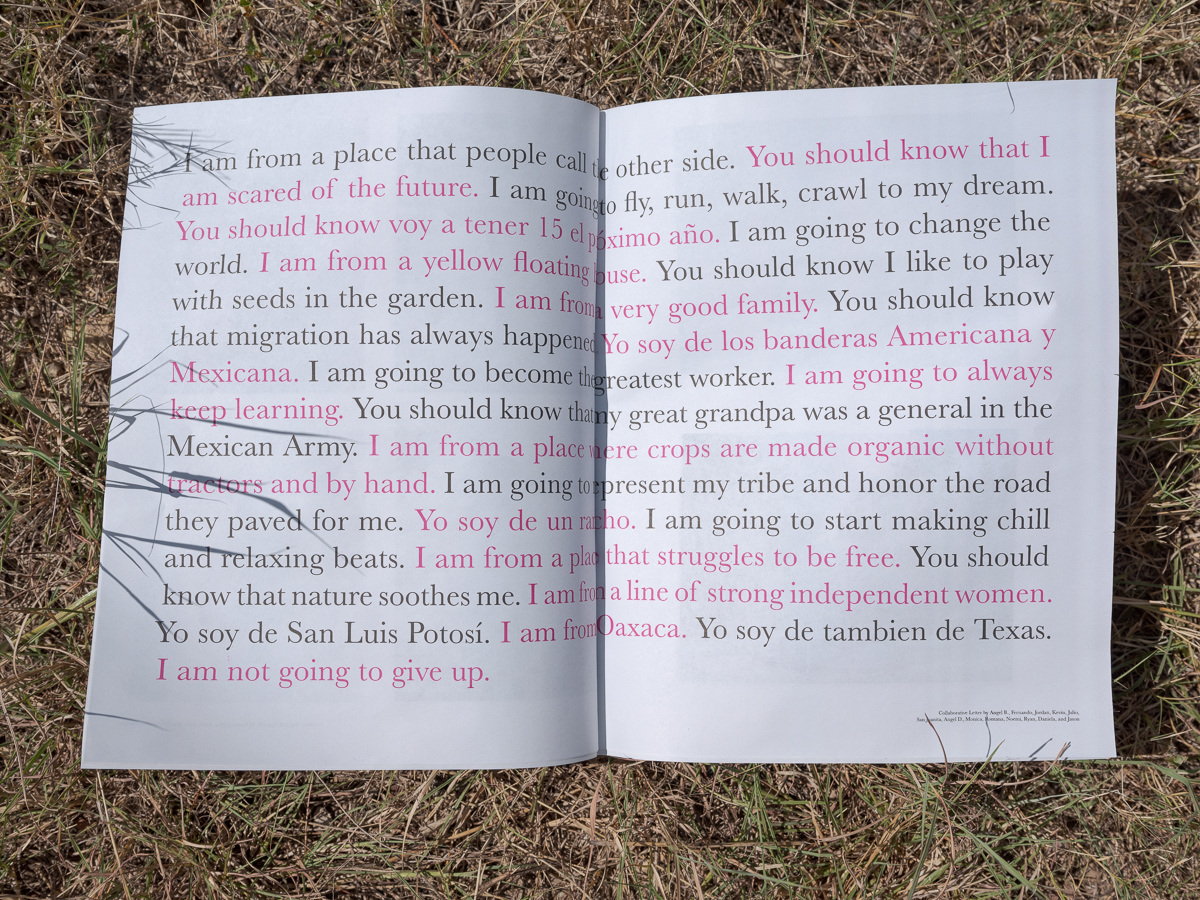 I am from a place that people call the other side. You should know that I
am scared of the future. I am going to fly, run, walk, crawl to my dream.
You should know voy a tener 15 el próximo año. I am going to change the
world. I am from a yellow floating house. You should know I like to play
with seeds in the garden. I am from a very good family. You should know
that migration has always happened. Yo soy de los banderas Americana y
Mexicana. I am going to become the greatest worker. I am going to always
keep learning. You should know that my great grandpa was a general in the
Mexican Army. I am from a place where crops are made organic without
tractors and by hand. I am going to represent my tribe and honor the road
they paved for me. Yo soy de un rancho. I am going to start making chill
and relaxing beats. I am from a place that struggles to be free. You should
know that nature soothes me. I am from a line of strong independent women.
Yo soy de San Luis Potosí. I am from Oaxaca. Yo soy de tambien de Texas.
I am not going to give up.
Collaborative Letter by Angel B., Fernando, Jordan, Kevin, Julio,
San Juanita, Angel D., Monica, Romana, Noema, Ryan, Daniela, and Jason